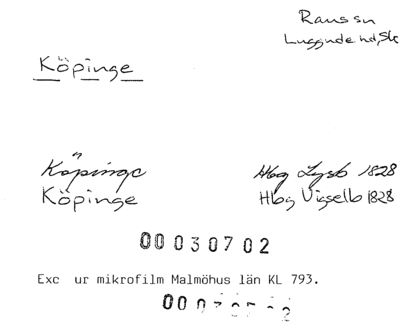 Raus sn
Luggude hd, Sk
Köpinge
Köpinge Hbg Lysb 1828
Köpinge Hbg Vigselb 1828
00030702
Exc ur mikrofilm Malmöhus län KL 793.